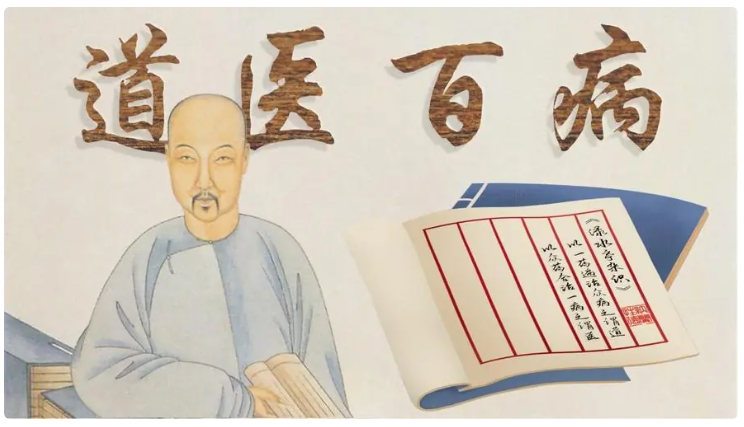 道医百病
《渌水亭杂识》
以一药遍治众病之谓道
以众药合治一病之谓医